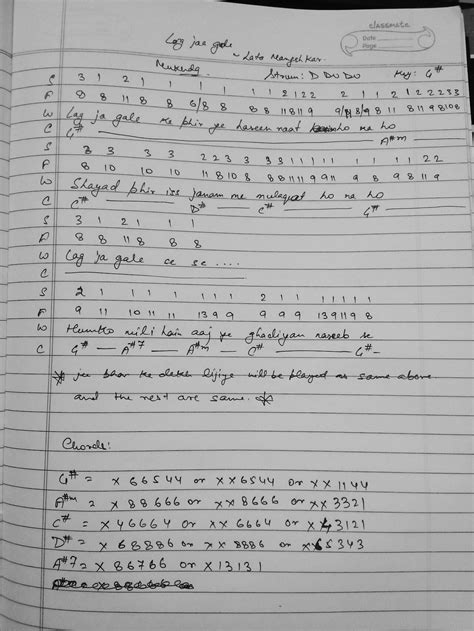 classmate
Date
Page
Lag jaa gale
- Lata Mangeshkar
Mukhda Strum: D DU DU Key: G#
S 3 1 2 1 1 1 1 1 1 1 1 2 1 2 2 2 1 1 2 2 2 3 3
F 8 8 11 8 8 6/8 8 8 8 11 8 11 9 9/11 8/9 8 11 8 9 10 8
W Lag ja gale ke phir ye haseen raat ho na ho
C G# A#m
S 3 3 3 3 2 2 3 3 3 1 1 1 1 1 1 1 2 2
F 8 10 10 10 11 8 10 8 8 8 11 11 9 8 9 8 11 9
W Shayad phir iss janam me mulaqaat ho na ho
C C# D# C# G#
S 3 1 2 1 1 1
F 8 8 11 8 8 8
W Lag ja gale ee se ....
C
S 2 1 1 1 1 1 1 2 1 1 1 1 1 1
F 9 11 10 11 11 13 9 9 9 9 9 13 9 11 9 8
W Humko mili hain aaj ye ghadiyan naseeb se
C G# — A#7 — A#m — C# G# -
* jee bhar ke dekh lijiye will be played as same above
and the rest are same. *
Chords:
G# = x 6 6 5 4 4 or x x 6 5 4 4 or x x 1 1 4 4
A#m = x 8 8 6 6 6 or x x 8 6 6 6 or x x 3 3 2 1
C# = x 4 6 6 6 4 or x x 6 6 6 4 or x 4 3 1 2 1
D# = x 6 8 8 8 6 or x x 8 8 8 6 or x 6 5 3 4 3
A#7 = x 8 6 7 6 6 or x 1 3 1 3 1